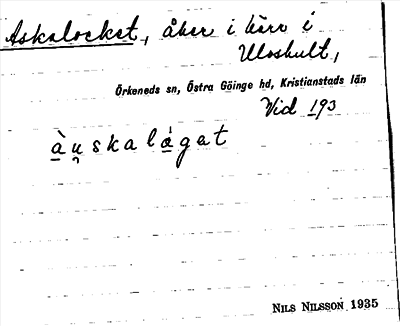 Askalocket, åker i kärr i
Uloshult,
Örkeneds sn, Östra Göinge hd, Kristianstads län
Vid 193
àu̯skalǻgat
NILS NILSSON 1935